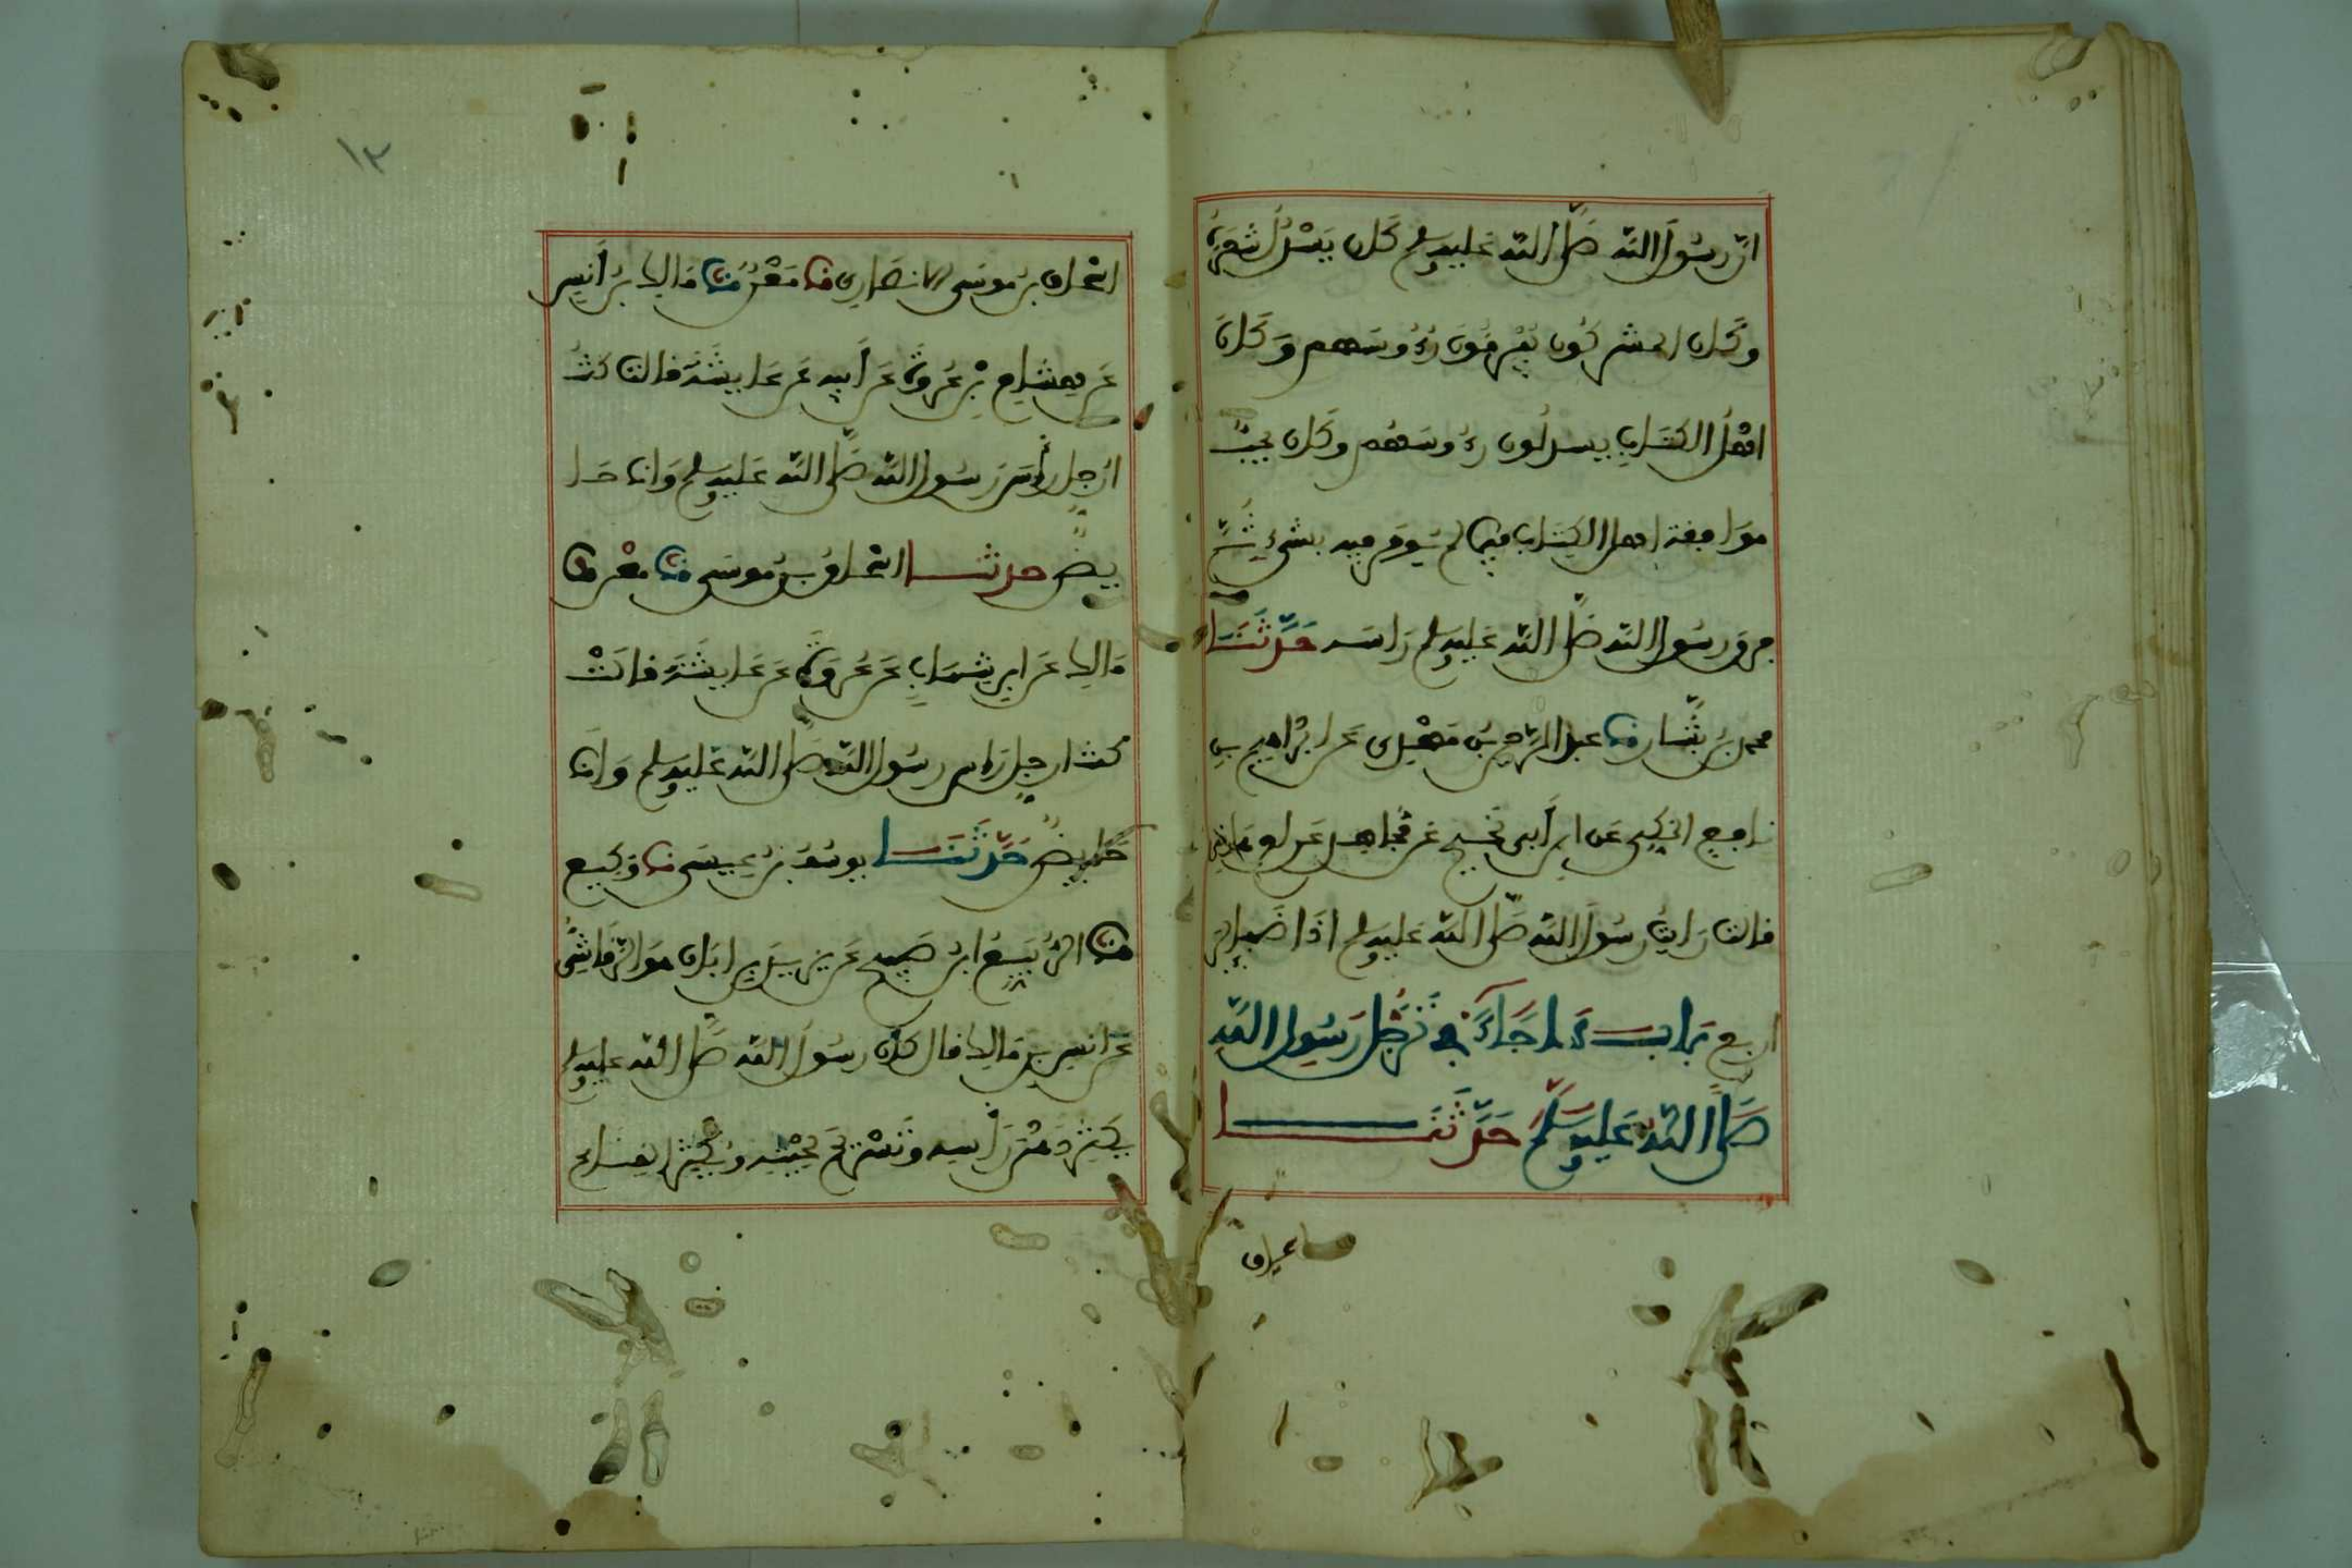 ان رسول الله صلى الله عليه وسلم كان يسدل شعره
وكان المشركون يفرقون رءوسهم وكان
اهل الكتاب يسدلون رءوسهم وكان يحب
موافقة اهل الكتاب فيما لم يومر فيه بشيء ثم
فرق رسول الله صلى الله عليه وسلم راسه حَدَّثَنَا
محمد بن بشار نا عبد الرحمن بن مهدي عن ابراهيم بن
نافع المكي عن ابن أبي نجيح عن مجاهد عن ام هانئ
قالت رايت رسول الله صلى الله عليه وسلم اذا ضفاير
اربع باب ما جاء في ترجل رسول الله
صلى الله عليه وسلم حَدَّثَنَا
اسحاق
١٣
اسحاق بن موسى الانصاري نا معن نا مالك بن أنس
عن هشام بن عروة عن أبيه عن عايشة قالت كنت
ارجل رأس رسول الله صلى الله عليه وسلم وانا حا
يض حدثنا اسحاق بن موسى نا معن نا
مالك عن ابن شهاب عن عروة عن عايشة قالت
كنت ارجل راس رسول الله صلى الله عليه وسلم وانا
حايض حَدَّثَنَا يوسف بن عيسى نا وكيع
نا الربيع ابن صبيح عن يزيد بن ابان هو الرقاشي
عن انس بن مالك قال كان رسول الله صلى الله عليه وسلم
يكثر دهن رأسه وتسريح لحيته ويكثر القناع